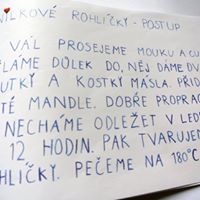 NILKOVÉ ROHLÍČKY - POSTUP
VÁL PROSEJEME MOUKU A CU
LÁME DŮLEK DO, NĚJ DÁME DV
UTKY A KOSTKY MÁSLA. PŘID
TÉ MANDLE. DOBŘE PROPRAC
NECHÁME ODLEŽET V LEDN
12 HODIN. PAK TVARUJEM
HLÍČKY. PEČEME NA 180°C